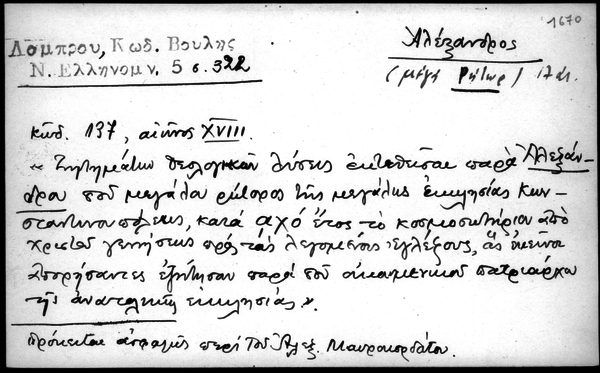 1670
Λάμπρου, Κωδ. Βουλῆς
Ν. Ελληνομν. 5 σ. 322
Ἀλέξανδρος
(μέγα ῥήτωρ)
κῶδ. 137, αἰῶνος XVIII.
« Ζητημάτων θεολογικῶν λύσεις ἐκτεθεῖσαι παρὰ Ἀλεξάν-
δρου τοῦ μεγάλου ῥήτορος τῆς μεγάλης ἐκκλησίας Κων-
σταντινουπόλεως, κατὰ αχό ἔτος τὸ κοσμοσωτήριον ἀπὸ
Χριστοῦ γεννήσεως πρὸς τὰς λεγομένας Ἐγλέζους, ἃς ἐκεῖνοι
ἀπορήσαντες ἐζήτησαν παρὰ τοῦ οἰκουμενικοῦ πατριάρχου
τῆς ἀνατολικῆς ἐκκλησίας ».
Πρόκειται ἀσφαλῶς περὶ τοῦ Ἀλεξ. Μαυροκορδάτου.